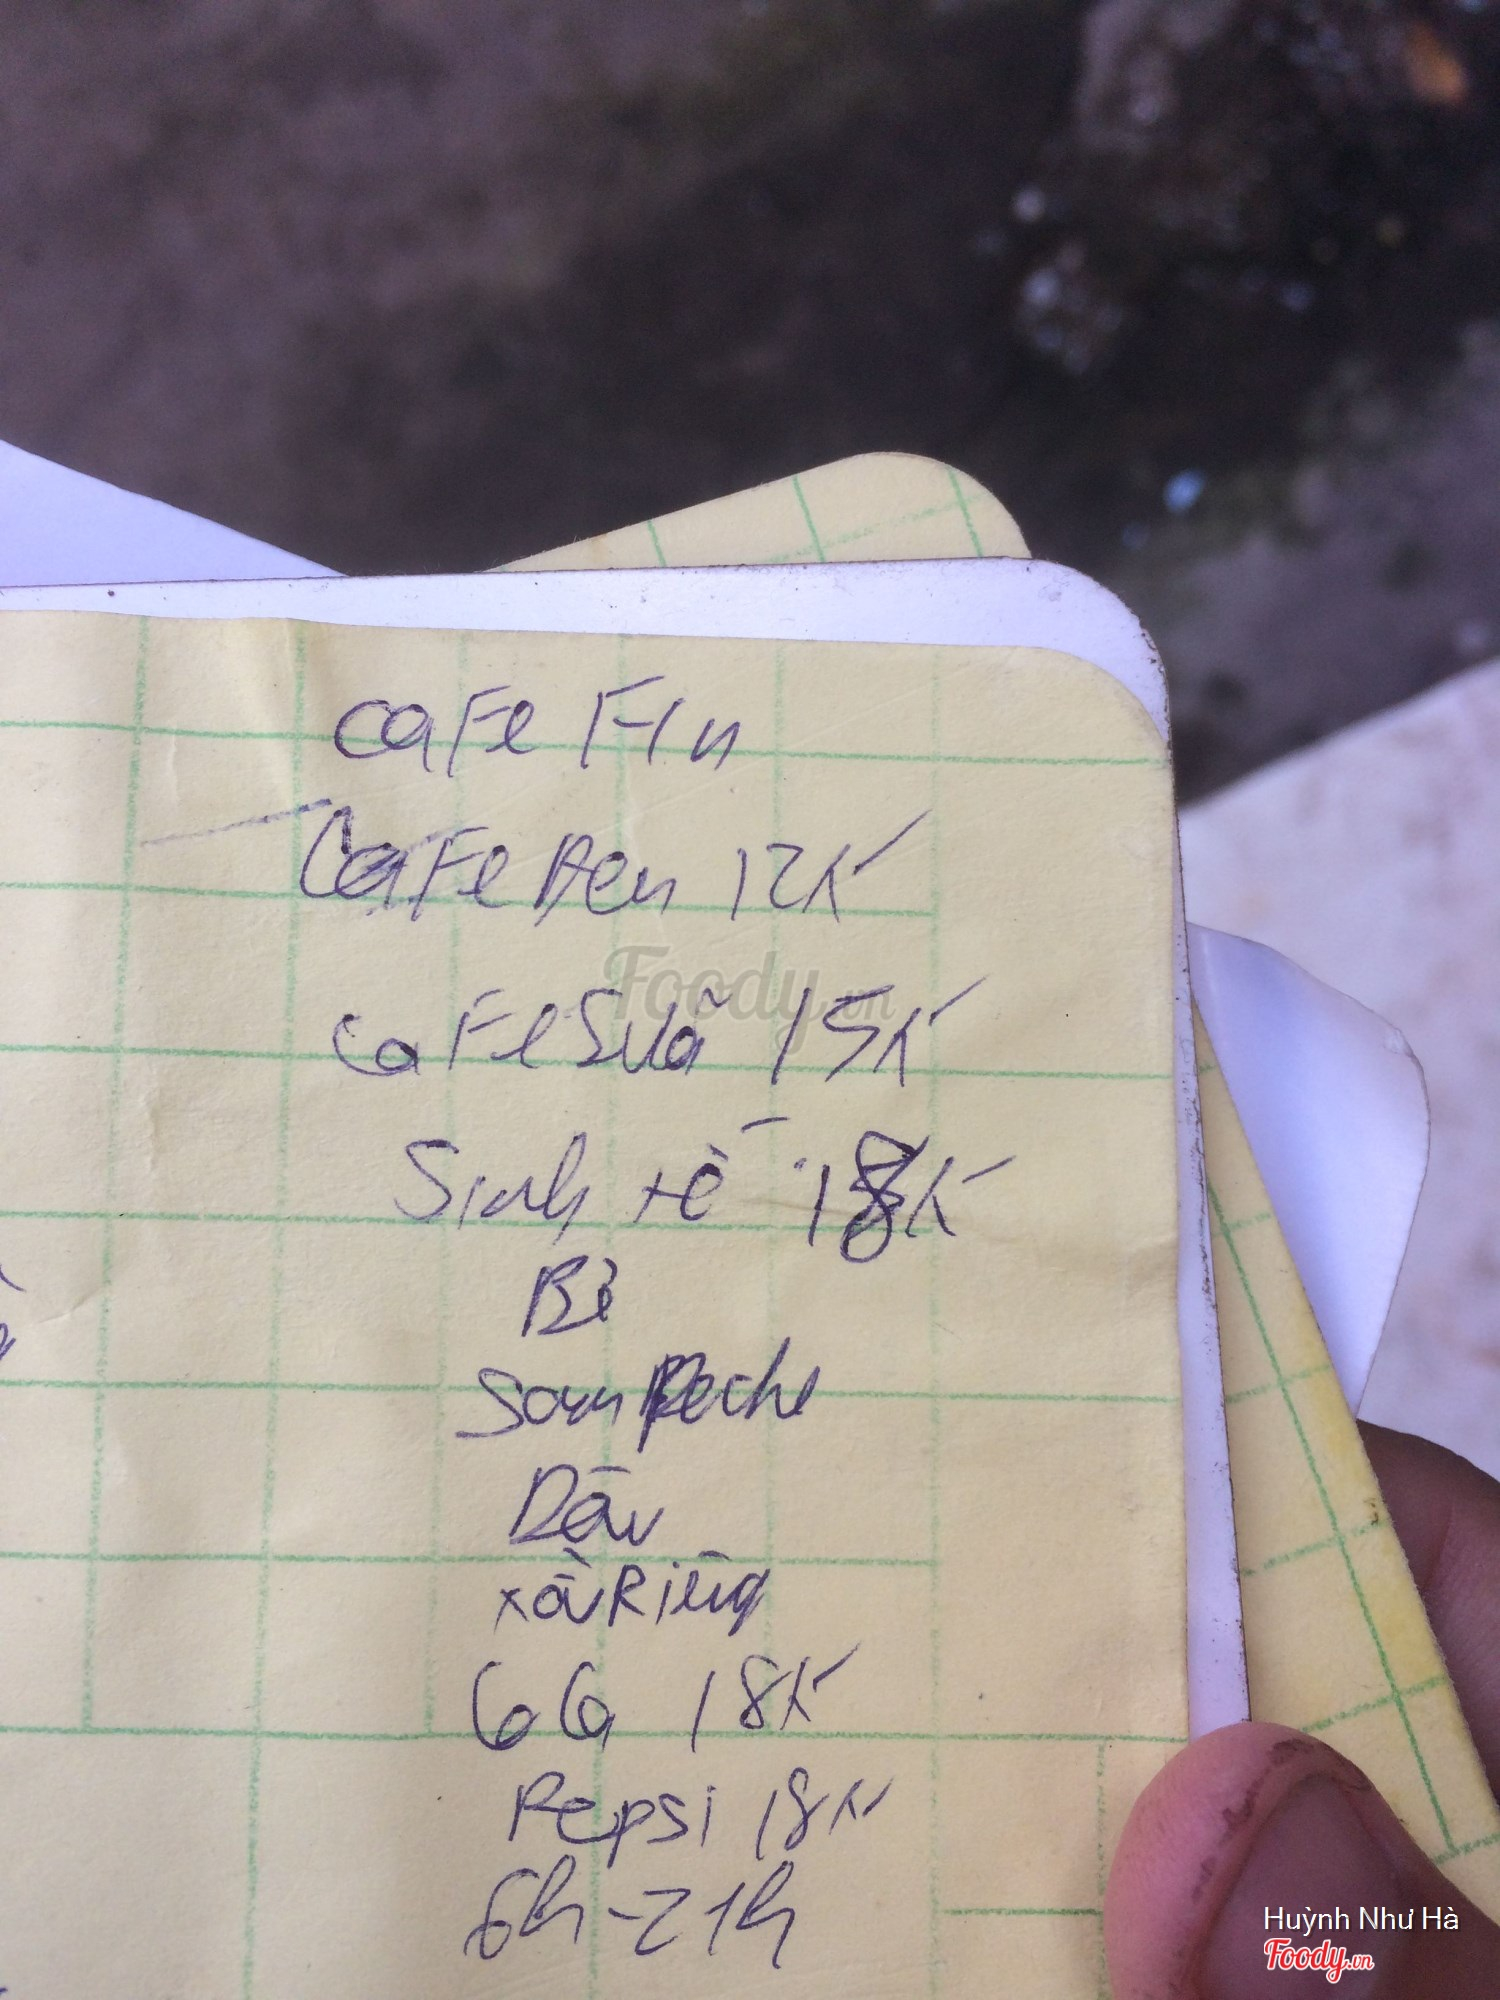 CaFe FIn
CaFe Đen 12K
Foody.vn
CaFe Sữa 15K
Sinh tố 18K
Bơ
Sampoche
Dâu
xàRiêng
CoCa 18K
Pepsi 18K
6h-21h
Huỳnh Như Hà
Foody.vn